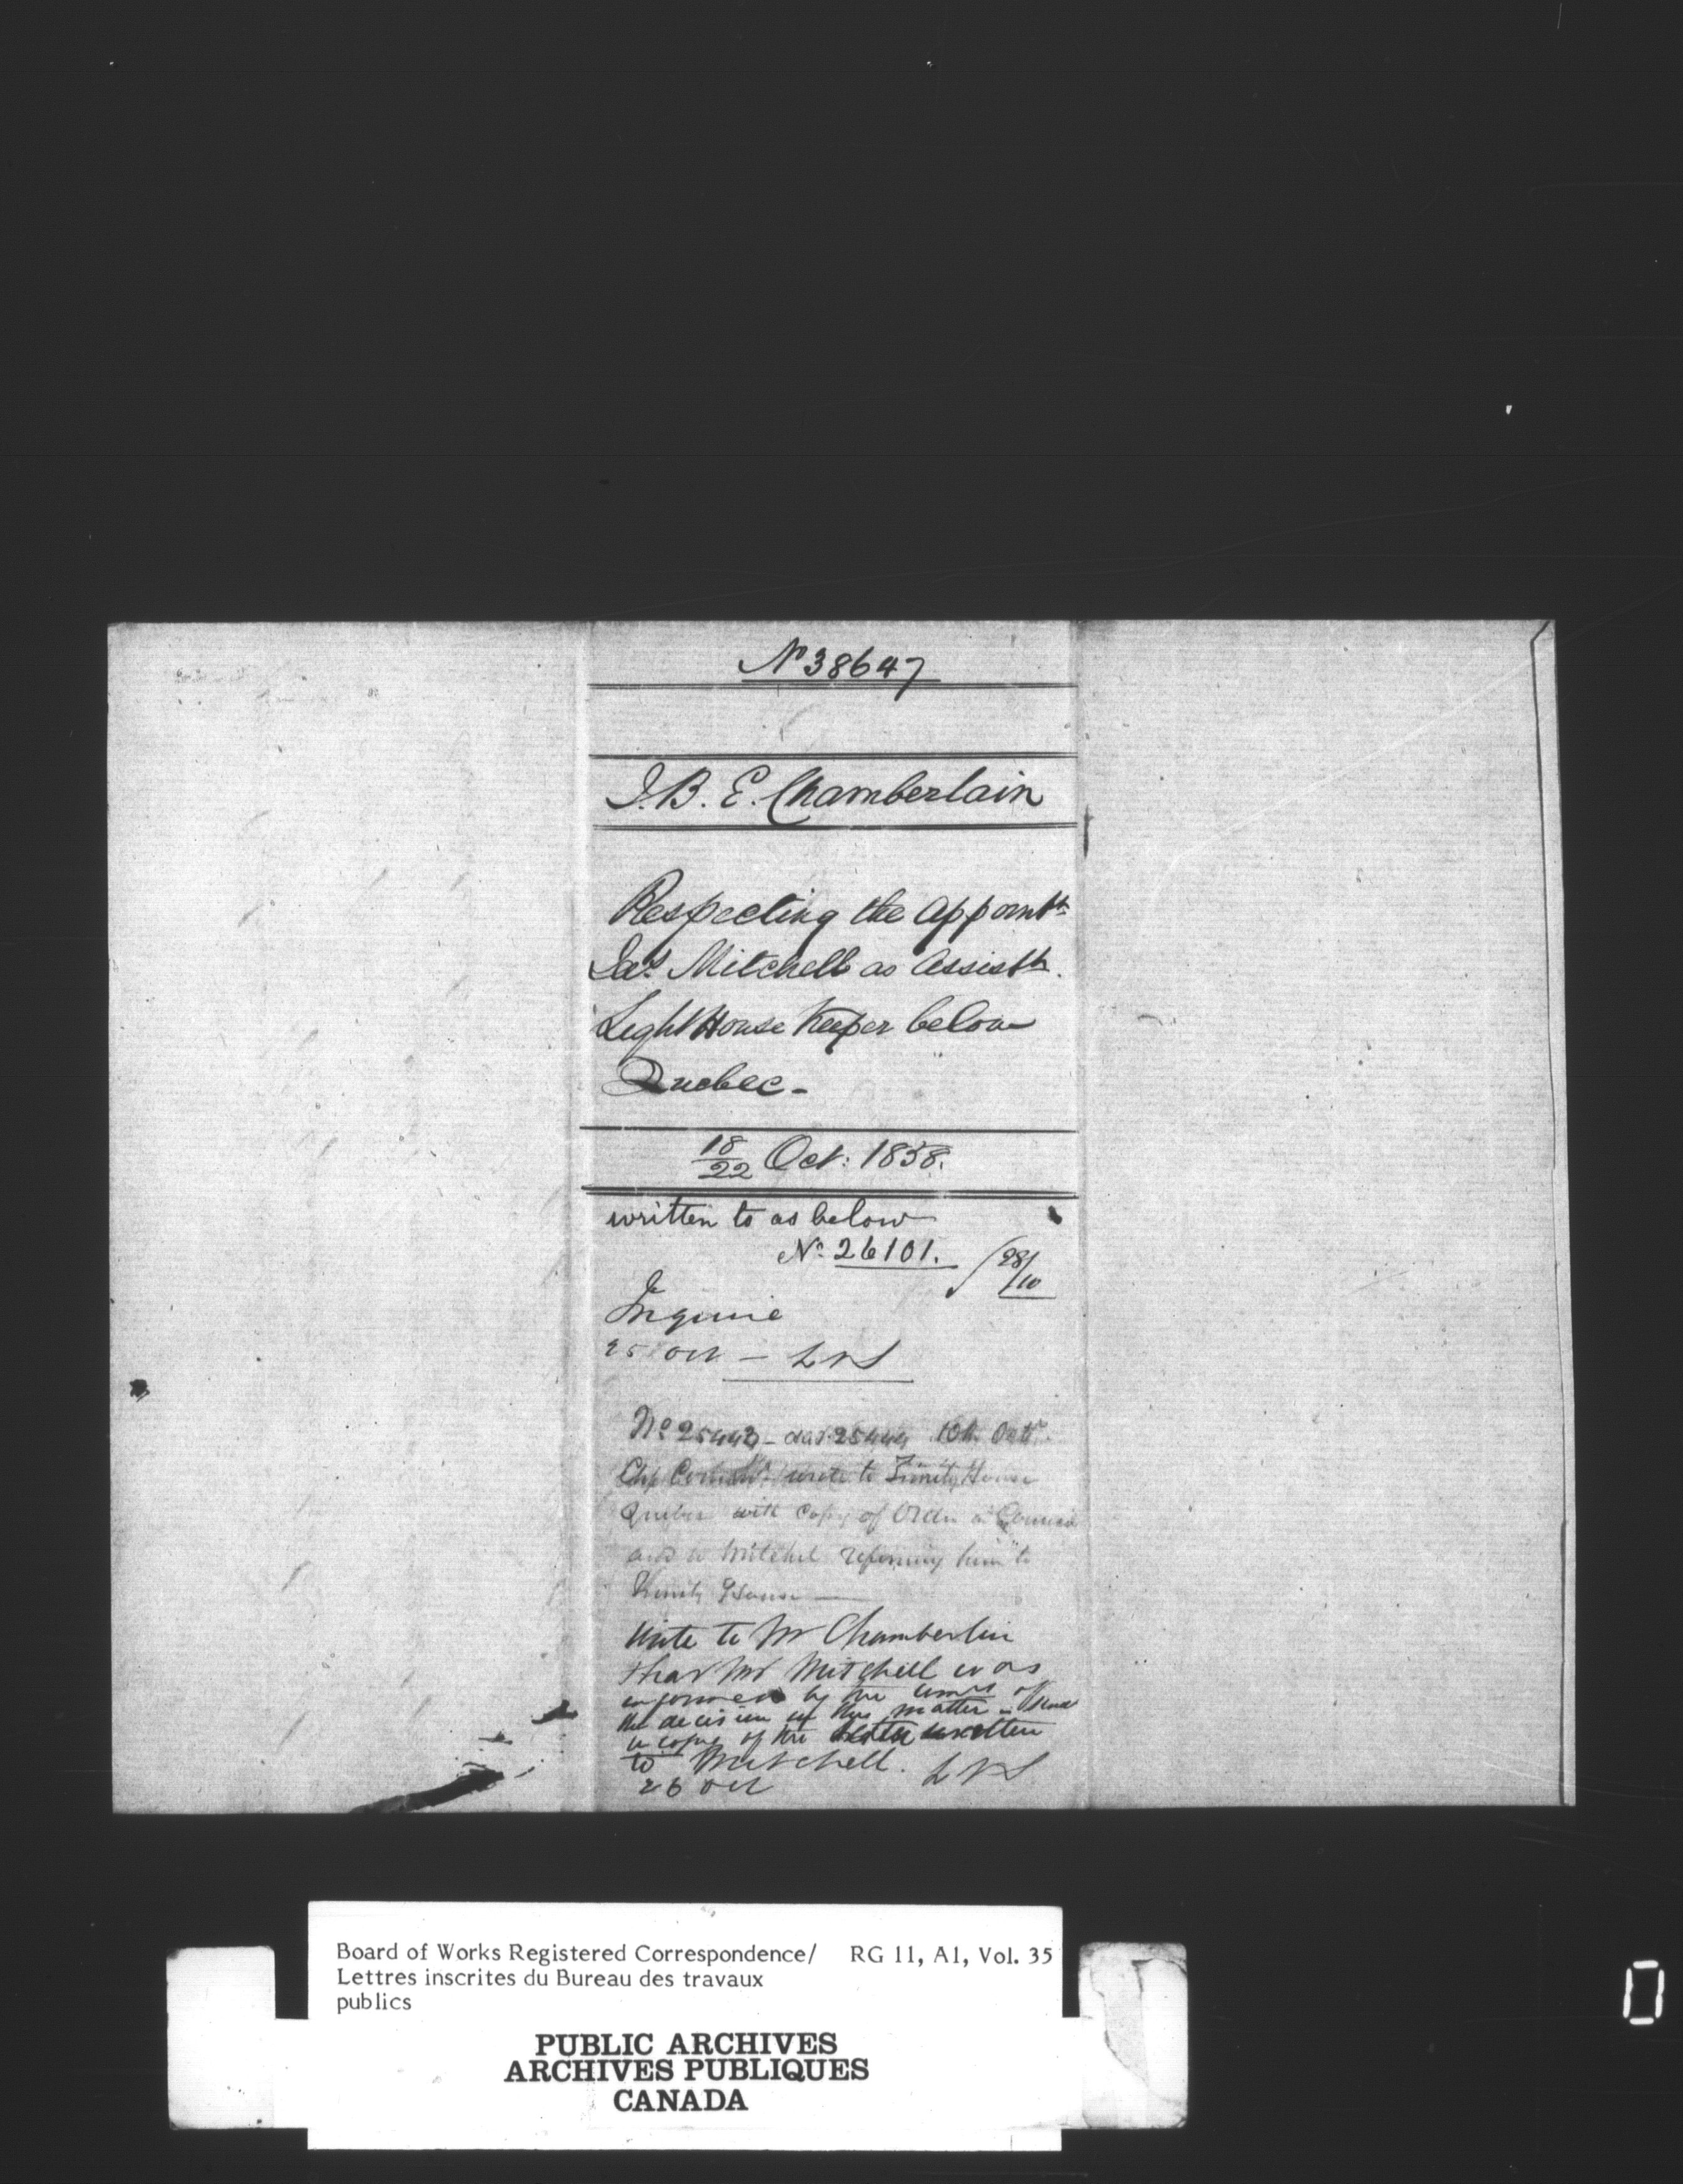 No 38647
J. B. E. Chamberlain
Respecting the appointt
Jas Mitchell as Assistt
Light House Keeper below
Quebec -
18/22 Oct: 1858.
written to as below
No 26101. 28/10
Inquire
25 Oct -
No 25443 - and 25444 10h Octr
wrote to Trinity House
Quebec with copy of Order in Council
and to Mitchel referring him to
Trinity House —
Write to Mr Chamberlin
that Mr Mitchell was
informed by the of
the decision in this matter - Send
a copy of the letter written
to Mitchell.
26 Oct
Board of Works Registered Correspondence/ RG 11, A1, Vol. 35
Lettres inscrites du Bureau des travaux
publics
PUBLIC ARCHIVES
ARCHIVES PUBLIQUES
CANADA